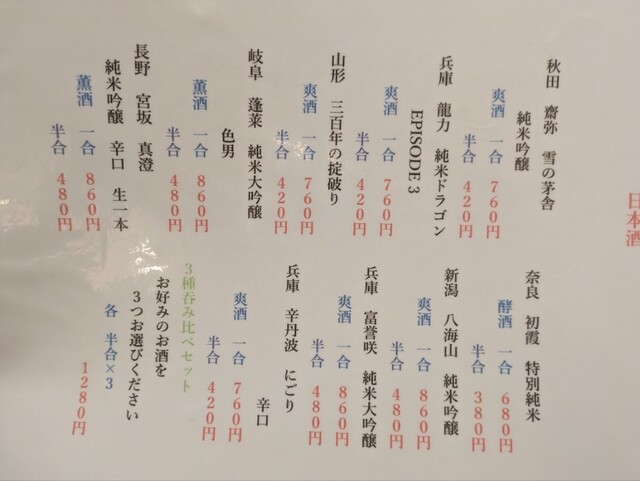 日本酒
秋田　齋弥　雪の茅舎
純米吟醸
爽酒　一合　760円
半合　420円
兵庫　龍力　純米ドラゴン
EPISODE 3
爽酒　一合　760円
半合　420円
山形　三百年の掟破り
爽酒　一合　760円
半合　420円
岐阜　蓬莱　純米大吟醸
色男
薫酒　一合　860円
半合　480円
長野　宮坂　真澄
純米吟醸　辛口　生一本
薫酒　一合　860円
半合　480円
奈良　初霞　特別純米
酵酒　一合　680円
半合　380円
新潟　八海山　純米吟醸
爽酒　一合　860円
半合　480円
兵庫　富誉咲　純米大吟醸
爽酒　一合　860円
半合　480円
兵庫　辛丹波　にごり
辛口
爽酒　一合　760円
半合　420円
3種呑み比べセット
お好みのお酒を
3つお選びください
各　半合×3
1280円